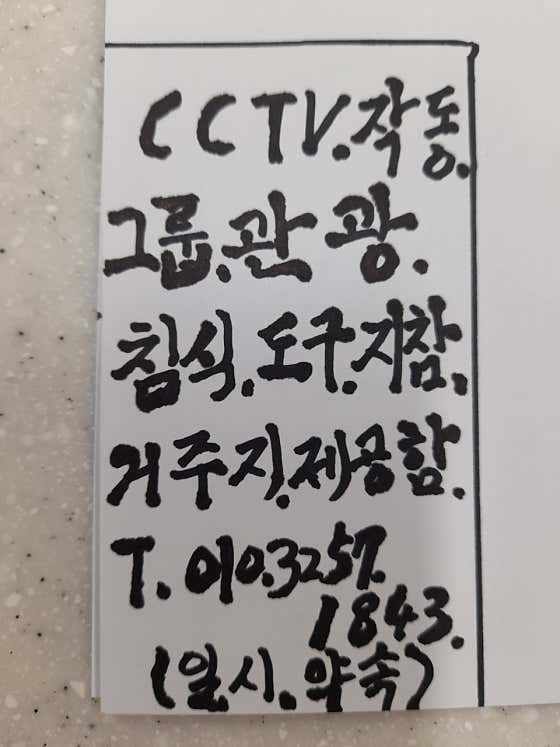 CCTV.작동.
그룹.관광.
침식.도구.지참.
거주지.제공함.
T. 010.3257.
1843.
(일.시.약속)